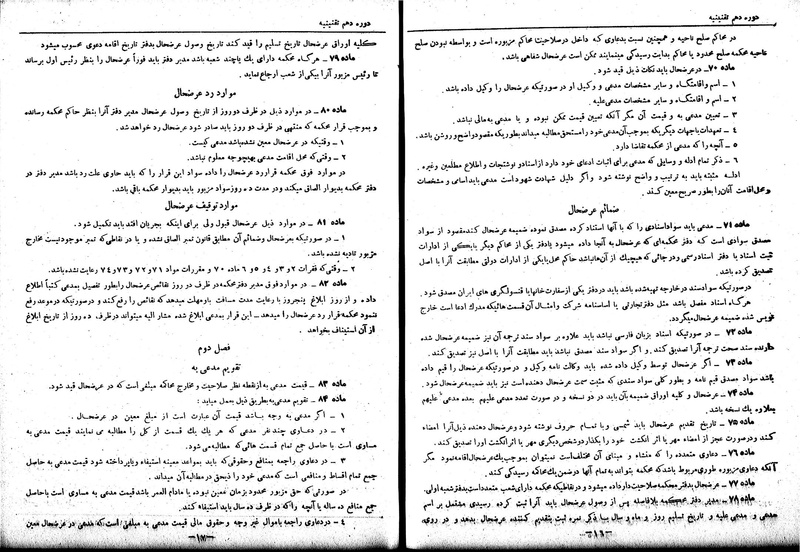 دوره دهم تقنینیه
در محاکم صلح ناحیه و همچنین نسبت بدعاوی که داخل در صلاحیت محاکم مزبوره است و بواسطه نبودن صلح
ناحیه محکمه صلح محدود یا محاکم بدایت رسیدگی مینمایند ممکن است عرضحال شفاهی باشد.
ماده ۷۰ ـ در عرضحال باید نکات ذیل قید شود.
۱ ـ اسم و اقامتگاه و سایر مشخصات مدعی و وکیل او در صورتیکه عرضحال را وکیل داده باشد.
۲ ـ اسم و اقامتگاه و سایر مشخصات مدعی علیه.
۳ ـ تعیین مدعی به و قیمت آن مگر آنکه تعیین قیمت ممکن نبوده و یا مدعی به مالی نباشد.
۴ ـ تعهدات یا جهات دیگریکه بموجب آن مدعی خود را مستحق مطالبه میداند بطوریکه مقصود واضح و روشن باشد.
۵ ـ آنچه را که مدعی از محکمه تقاضا دارد.
۶ ـ ذکر تمام ادله و وسایل که مدعی برای اثبات ادعای خود دارد از اسناد و نوشتجات و اطلاع مطلعین و غیره.
ادله مثبته باید به ترتیب و واضح نوشته شود و اگر دلیل شهادت شهود است مدعی باید اسامی و مشخصات
و محل اقامت آنان را بطور صریح معین کند.
ضمائم عرضحال
ماده ۷۱ ـ مدعی باید سواد اسنادی را که با آنها استناد کرده مصدق نموده ضمیمه عرضحال کند مقصود از سواد
مصدق سوادی است که دفتر محکمه‌ای که عرضحال به آنجا داده میشود یا دفتر یکی از محاکم دیگر یا یکی از ادارات
ثبت اسناد یا دفتر اسناد رسمی و در جائی که هیچیک از آنها نباشد حاکم محل یا یکی از ادارات دولتی مطابقت آنرا با اصل
تصدیق کرده باشد.
در صورتیکه سواد سند در خارجه تهیه شده باشد باید در دفتر یکی از سفارت خانها یا قنسولگری های ایران مصدق شود.
هر گاه اسناد مفصل باشد مثل دفتر تجارتی یا اساسنامه شرکت و امثال آن قسمت هائیکه مدرک ادعا است خارج
نویس شده ضمیمه عرضحال میگردد.
ماده ۷۲ ـ در صورتیکه اسناد بزبان فارسی نباشد باید علاوه بر سواد سند ترجمه آن نیز ضمیمه عرضحال شده
دارنده سند صحت ترجمه آن را تصدیق کند. و اگر سواد سند مصدق نباشد باید مطابقت آنرا با اصل نیز تصدیق کند.
ماده ۷۳ ـ اگر عرضحال توسط وکیل داده شده باید وکالت نامه وکیل و در صورتیکه عرضحال را قیم داده
باشد سواد مصدق قیم نامه و بطور کلی سواد سندی که مثبت سمت عرضحال دهنده است نیز باید ضمیمه عرضحال شود.
ماده ۷۴ ـ عرضحال و کلیه اوراق ضمیمه بآن باید در دو نسخه و در صورت تعدد مدعی علیهم بعده مدعی علیهم
بعلاوه یک نسخه باشد.
ماده ۷۵ ـ تاریخ تقدیم عرضحال باید شمسی و با تمام حروف نوشته شود و عرضحال دهنده ذیل آنرا امضاء
کند و در صورت عجز از امضاء مهر یا اثر انگشت خود را بگذارد و شخص دیگری مهر یا اثر انگشت اورا تصدیق کند.
ماده ۷۶ ـ دعاوی متعدده را که منشاء و مبنای آن مختلف است نمیتوان بموجب یک عرضحال اقامه نمود مگر
آنکه دعاوی مزبوره طوری مربوط باشد که محکمه بتواند به تمام آنها در ضمن یک محاکمه رسیدگی کند.
ماده ۷۷ ـ عرضحال بدفتر محکمه صلاحیت دار داده میشود و در نقاطی که محکمه دارای شعب متعدد است بدفتر شعبه اولی.
ماده ۷۸ ـ مدیر دفتر محکمه بلافاصله پس از وصول عرضحال باید آنرا ثبت کرده رسیدی مشتمل بر اسم
مدعی و مدعی علیه و تاریخ تسلیم روز و ماه و سال با ذکر نمره ثبت بتقدیم کننده عرضحال بدهد و در روی
ـ ۱۶ ـ
دوره دهم تقنینیه
کلیه اوراق عرضحال تاریخ تسلیم را قید کند تاریخ وصول عرضحال بدفتر تاریخ اقامه دعوی محسوب میشود
ماده ۷۹ ـ هر گاه محکمه دارای یک یا چند شعبه باشد مدیر دفتر باید فوراً عرضحال را بنظر رئیس اول برساند
تا رئیس مزبور آنرا بیکی از شعب ارجاع نماید.
موارد رد عرضحال
ماده ۸۰ ـ در موارد ذیل در ظرف دو روز از تاریخ وصول عرضحال مدیر دفتر آنرا بنظر حاکم محکمه رسانده
و بموجب قرار محکمه که منتهی در ظرف دو روز باید صادر شود عرضحال رد خواهد شد.
۱ ـ وقتیکه در عرضحال معین نشده باشد مدعی کیست.
۲ ـ وقتی که محل اقامت مدعی بهیچوجه معلوم نباشد.
در موارد فوق محکمه قرار رد عرضحال را داده سواد این قرار را که باید حاوی علت رد باشد مدیر دفتر در
دفتر محکمه بدیوار الصاق میکند و در مدت ده روز سواد مزبور باید بدیوار محکمه باقی باشد.
موارد توقیف عرضحال
ماده ۸۱ ـ در موارد ذیل عرضحال قبول ولی برای اینکه بجریان افتد باید تکمیل شود.
۱ ـ در صورتیکه بعرضحال و ضمائم آن مطابق قانون تمبر الصاق نشده و یا در نقاطی که تمبر موجود نیست مخارج
مزبور تادیه نشده باشد.
۲ ـ وقتی که فقرات ۲ و ۳ و ۴ و ۵ و ۶ ماده ۷۰ و مقررات مواد ۷۱ و ۷۲ و ۷۳ و ۷۴ رعایت نشده باشد.
ماده ۸۲ ـ در موارد فوق مدیر دفتر محکمه در ظرف دو روز نقائص عرضحال را بطور تفصیل بمدعی کتباً اطلاع
داده و از روز ابلاغ پنجروز با رعایت مدت مسافت باو مهلت میدهد که نقائص را رفع کند و در صورتیکه در موعد رفع
ننمود محکمه قرار رد عرضحال را میدهد ـ این قرار بمدعی ابلاغ شده مشار الیه میتواند در ظرف ده روز از تاریخ ابلاغ
از آن استیناف بخواهد.
فصل دوم
تقویم مدعی به
ماده ۸۳ ـ قیمت مدعی به از نقطه نظر صلاحیت و مخارج محاکمه مبلغی است که در عرضحال قید شود.
ماده ۸۴ ـ تقویم مدعی به بطریق ذیل بعمل میاید:
۱ ـ اگر مدعی به وجه باشد قیمت آن عبارت است از مبلغ معین در عرضحال.
۲ ـ در دعاوی چند نفر مدعی که هر یک یک قسمت از کل را مطالبه می نمایند قیمت مدعی به
مساوی است با حاصل جمع تمام قسمت هائی که مطالبه می شود.
۳ ـ در دعاوی راجعه بمنافع و حقوقی که باید بمواعد معینه استیفاء و یا پرداخته شود قیمت مدعی به حاصل
جمع تمام اقساط و منافعی است که مدعی خود را ذیحق در مطالبه آن میداند.
در صورتی که حق مزبور محدود بزمان معین نبوده یا مادام العمر باشد قیمت مدعی به مساوی است با حاصل
جمع منافع ده ساله یا آنچه را که در ظرف ده سال باید استیفاء کند.
۴ ـ در دعاوی راجعه باموال غیر وجه و حقوق مالی قیمت مدعی به مبلغی است که مدعی در عرضحال معین
ـ ۱۷ ـ